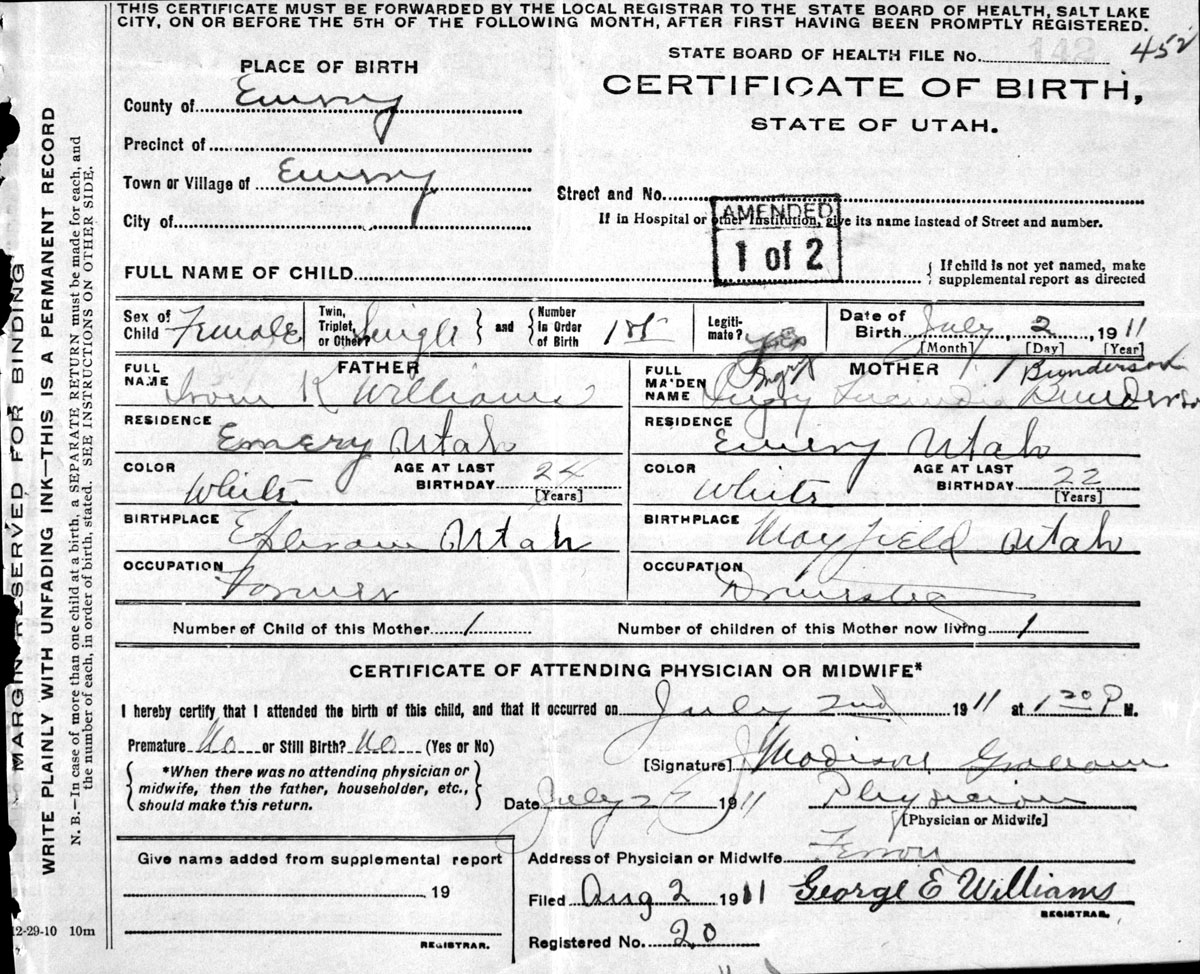 THIS CERTIFICATE MUST BE FORWARDED BY THE LOCAL REGISTRAR TO THE STATE BOARD OF HEALTH, SALT LAKE
CITY, ON OR BEFORE THE 5TH OF THE FOLLOWING MONTH, AFTER FIRST HAVING BEEN PROMPTLY REGISTERED.
MARGIN RESERVED FOR BINDING
WRITE PLAINLY WITH UNFADING INK—THIS IS A PERMANENT RECORD
N. B.—In case of more than one child at a birth, a SEPARATE RETURN must be made for each, and
the number of each, in order of birth, stated. SEE INSTRUCTIONS ON OTHER SIDE.
STATE BOARD OF HEALTH FILE No. 452
PLACE OF BIRTH
CERTIFICATE OF BIRTH,
STATE OF UTAH.
County of Emery
Precinct of
Town or Village of Emery
Street and No.
City of
If in Hospital or other Institution, give its name instead of Street and number.
AMENDED
1 of 2
FULL NAME OF CHILD
If child is not yet named, make
supplemental report as directed
Sex of Child Female
Twin, Triplet, or Other Single
and
Number in Order of Birth 1st
Legitimate? Yes
Date of Birth July 2, 1911
[Month] [Day] [Year]
FATHER
FULL NAME K Williams
RESIDENCE Emery Utah
COLOR White
AGE AT LAST BIRTHDAY 24
[Years]
BIRTHPLACE Ephraim Utah
OCCUPATION Farmer
MOTHER
Bunderson
FULL MAIDEN NAME Bunderson
RESIDENCE Emery Utah
COLOR White
AGE AT LAST BIRTHDAY 22
[Years]
BIRTHPLACE Mayfield Utah
OCCUPATION Domestic
Number of Child of this Mother 1
Number of children of this Mother now living 1
CERTIFICATE OF ATTENDING PHYSICIAN OR MIDWIFE*
I hereby certify that I attended the birth of this child, and that it occurred on July 2nd 1911 at 1 20 P M.
Premature No or Still Birth? No (Yes or No)
*When there was no attending physician or
midwife, then the father, householder, etc.,
should make this return.
[Signature] Madison Graham
Date July 1911 Physician
[Physician or Midwife]
Give name added from supplemental report
19
REGISTRAR.
Address of Physician or Midwife Ferron
Filed Aug 2 1911 George E Williams
REGISTRAR.
Registered No. 20
12-29-10 10m